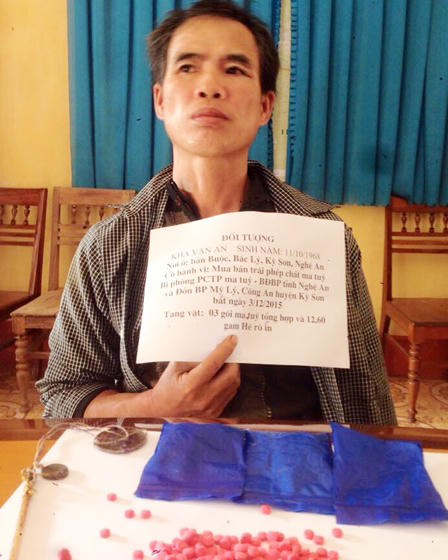 ĐỐI TƯỢNG
KHA VĂN AN SINH NĂM: 11/10/1968
Nơi ở: bản Buộc, Bắc Lý, Kỳ Sơn, Nghệ An
Có hành vi: Mua bán trái phép chất ma tuý
Bị phòng PCTP ma tuý - BĐBP tỉnh Nghệ An
và Đồn BP Mỹ Lý, Công An huyện Kỳ Sơn
bắt ngày 3/12/2015
Tang vật: 03 gói ma tuý tổng hợp và 12,60
gam Hê rô in